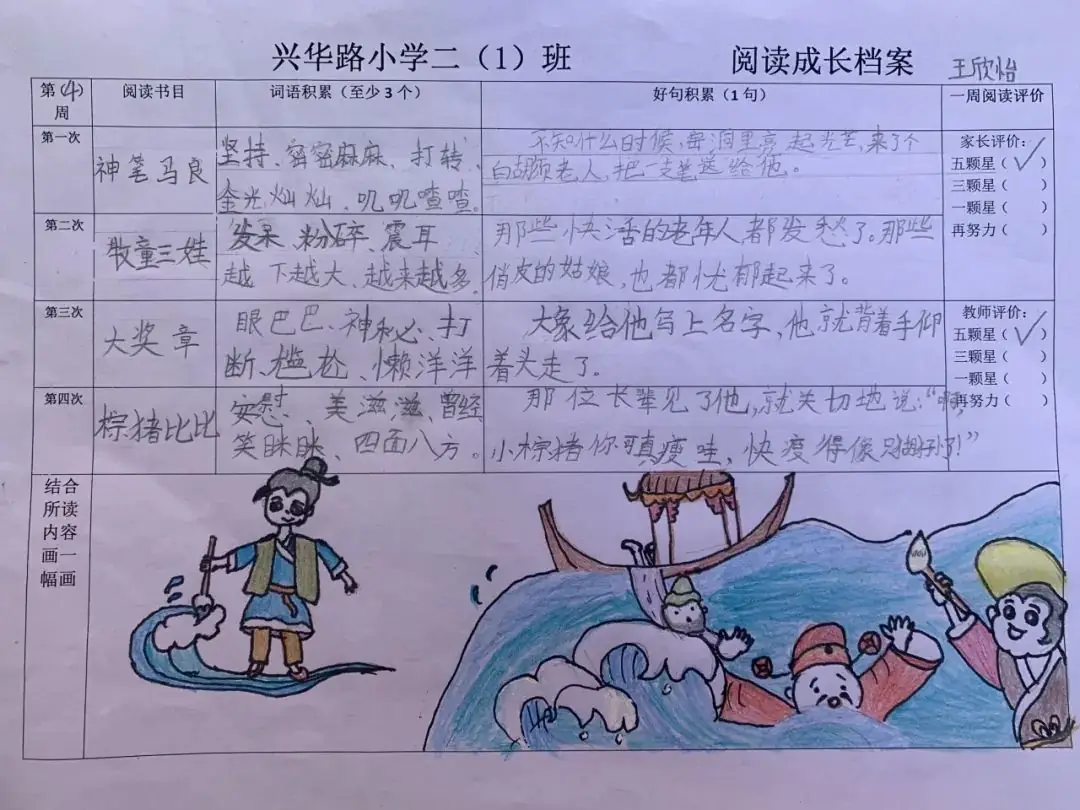 兴华路小学二（1）班 阅读成长档案 王欣怡
第(4)周 阅读书目 词语积累（至少3个） 好句积累（1句） 一周阅读评价
第一次
神笔马良
坚持、密密麻麻、打转、
金光灿灿、叽叽喳喳。
不知什么时候，窑洞里亮起光芒，来了个
白胡须老人，把一支笔送给他。
家长评价：
五颗星（✓）
三颗星（ ）
一颗星（ ）
再努力（ ）
第二次
牧童三娃
发呆、粉碎、震耳
越下越大、越来越多。
那些快活的老年人都发愁了。那些
俏皮的姑娘，也都忧郁起来了。
第三次
大奖章
眼巴巴、神秘、打
断、尴尬、懒洋洋
大象给他写上名字，他就背着手仰
着头走了。
教师评价：
五颗星（✓）
三颗星（ ）
一颗星（ ）
再努力（ ）
第四次
棕猪比比
安慰、美滋滋、曾经
笑眯眯、四面八方。
那位长辈见了他，就关切地说：“啊，
小棕猪你可真瘦哇，快瘦得像只猴子了！”
结合
所读
内容
画一
幅画